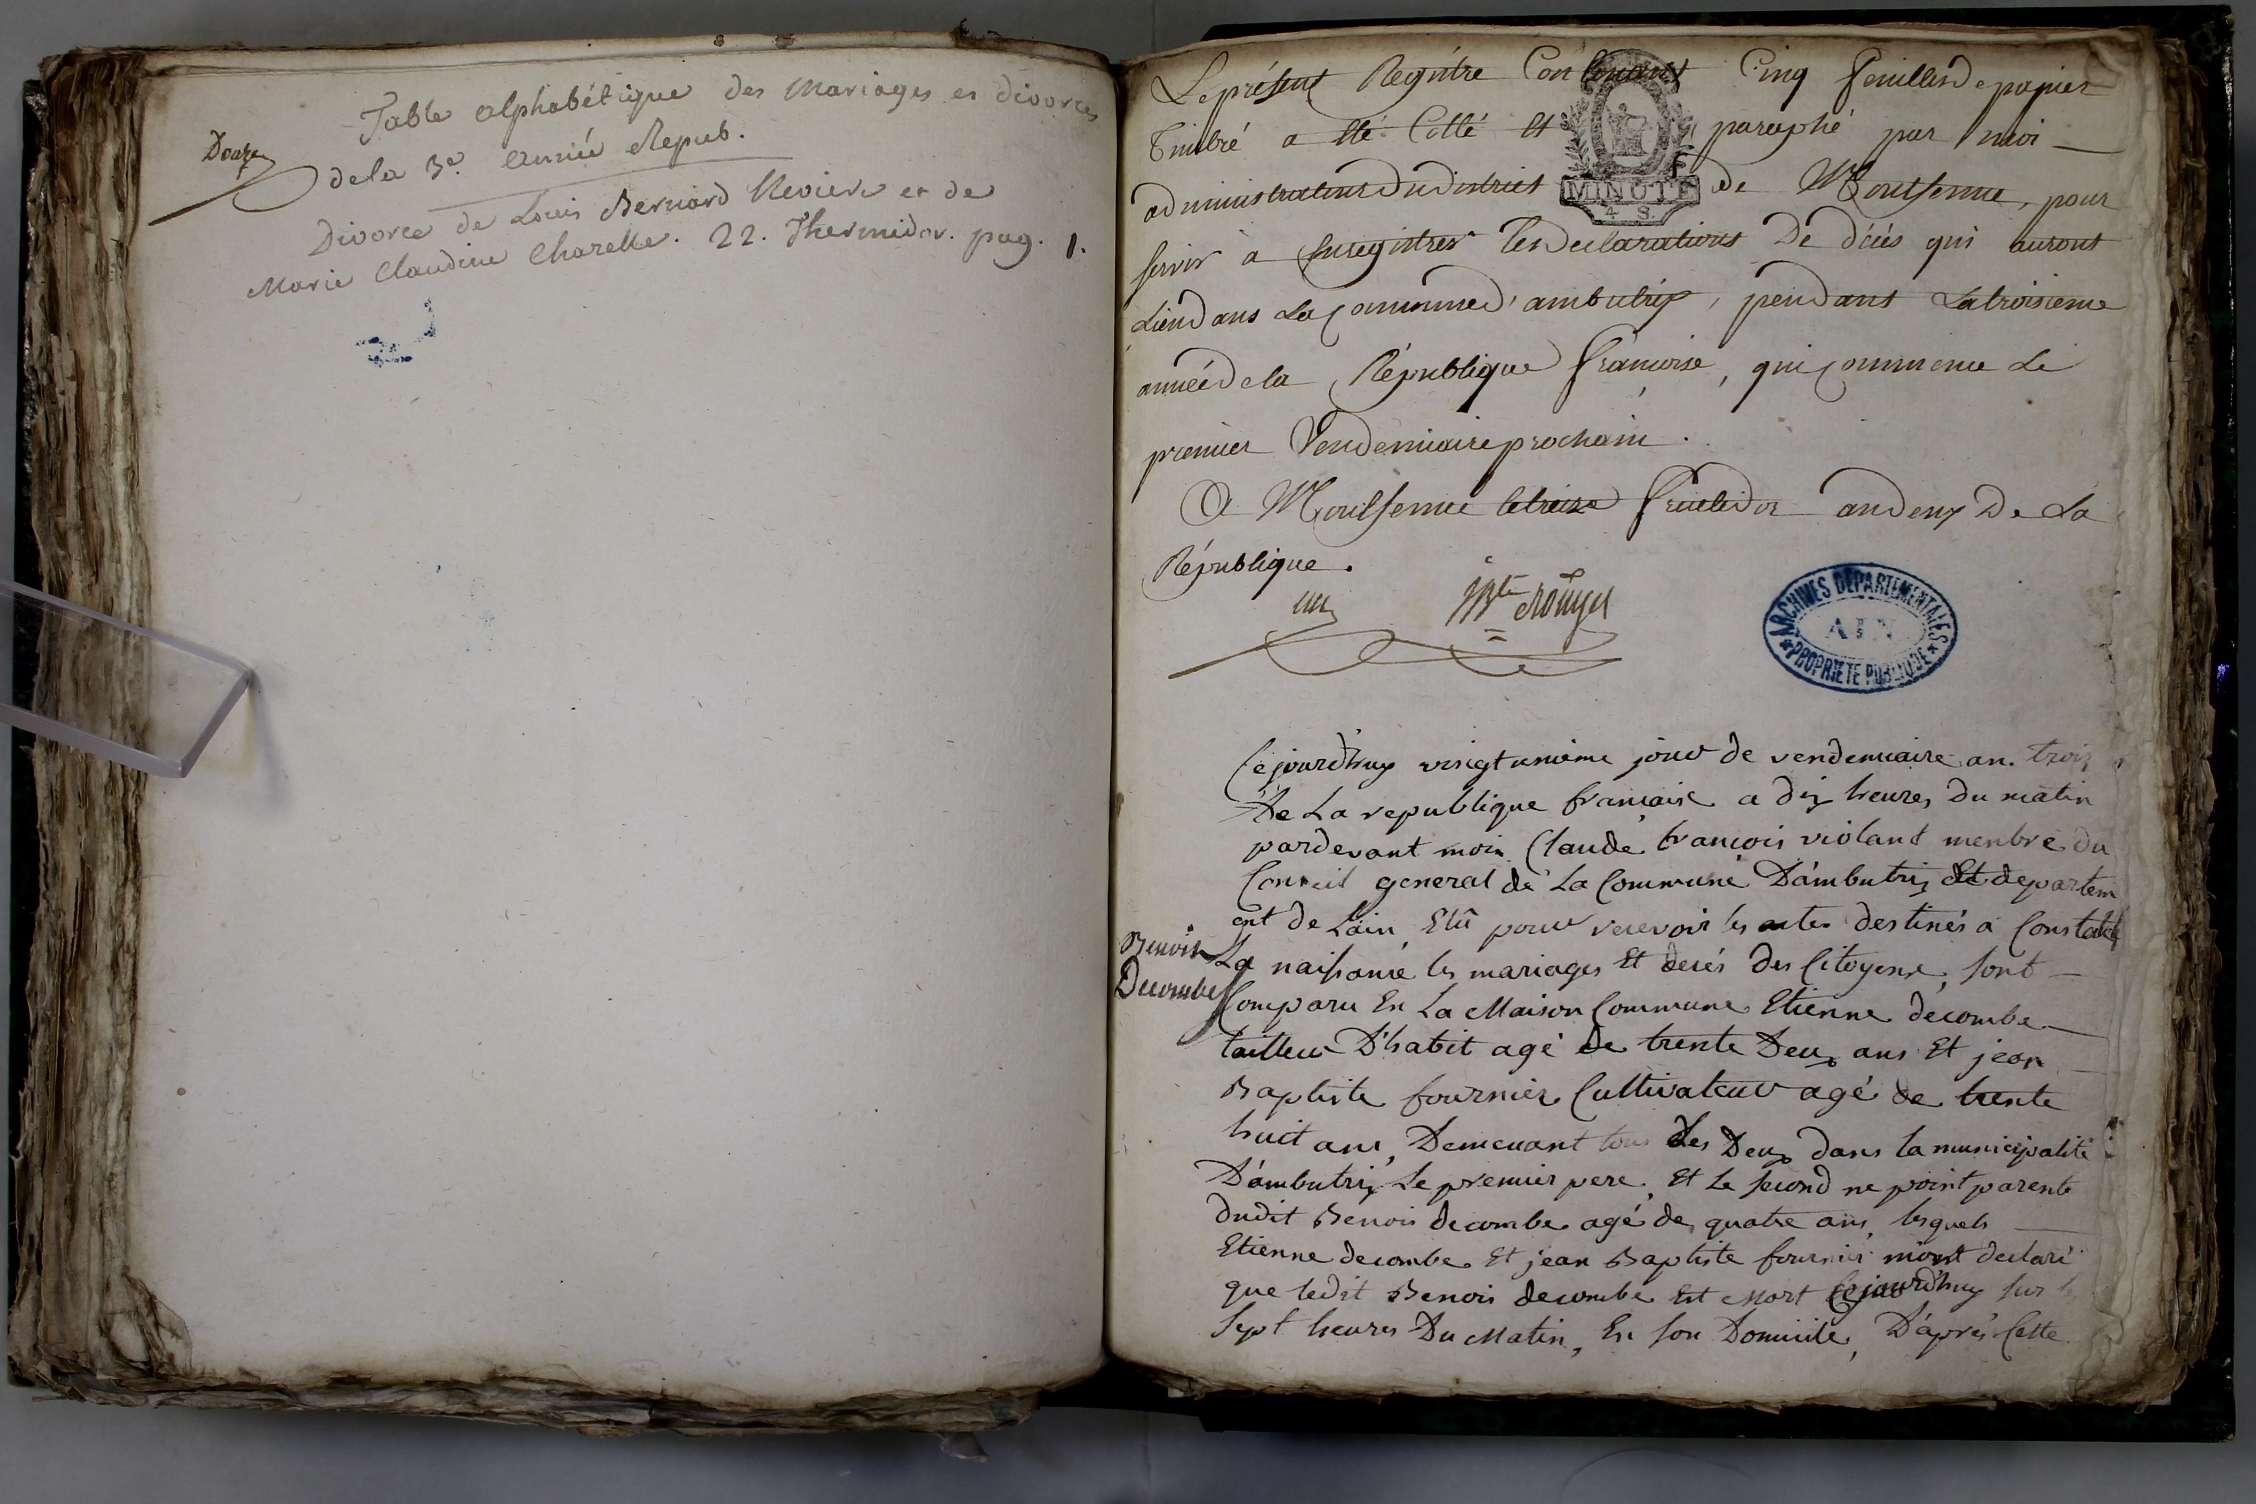 Douze
Table alphabétique des Mariages et divorces
de la 3e. année Repub.
Divorce de Louis Bernard Reviere et de
Marie Claudine Charelle. 22. Thermidor. pag. 1.
Le présent Registre Contenant Cinq feuilles de papier
Timbré a été Cotté et paraphé par moi
administrateur du district de Montferme, pour
servir a Enregistrer les declarations De décés qui auront
Lieu dans La Commune d'ambutrix, pendant La troisieme
année de la République françoise, qui commence Le
premier Vendemiaire prochain.
A Montferme le treize fructidor an deux De La
République.
MINUTE
4 S.
ARCHIVES DEPARTEMENTALES
AIN
PROPRIETE PUBLIQUE
Cejourdhuy vingt unieme jour de vendemiaire an trois
De La republique francaise a dix heures Du matin
pardevant moi Claude françois violant menbre du
Conseil general de La Commune D'ambutrix departem
ent de Lain, Elû pour recevoir les actes destinés a Constater
La naissance les mariages Et decés des Citoyens, sont
Benoit
Decombe
Comparu En La Maison Commune Etienne decombe
tailleur D'habit agé de trente Deux ans Et jean
Baptiste fournier Cultivateur agé de trente
huit ans, Demeurant tous les Deux dans la municipalité
D'ambutrix Le premier pere Et Le second ne point parente
dudit Benois decombe agé de quatre ans, lesquels
Etienne decombe Et jean Baptiste fournier mont declaré
que ledit Benois decombe Est Mort Cejourdhuy sur les
Sept heures Du Matin, En son Domicile, D'aprés Cette